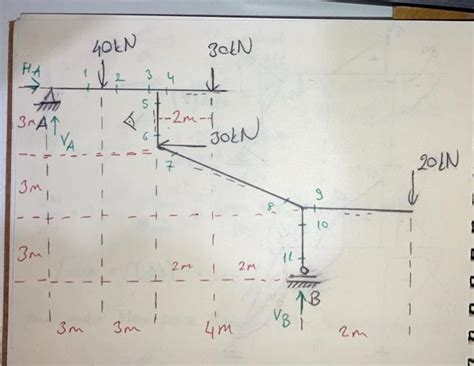 40kN
30kN
HA
1
2
3
4
5
3m
A
VA
2m
6
30kN
7
20kN
3m
8
9
10
3m
11
2m
2m
B
VB
3m
3m
4m
2m